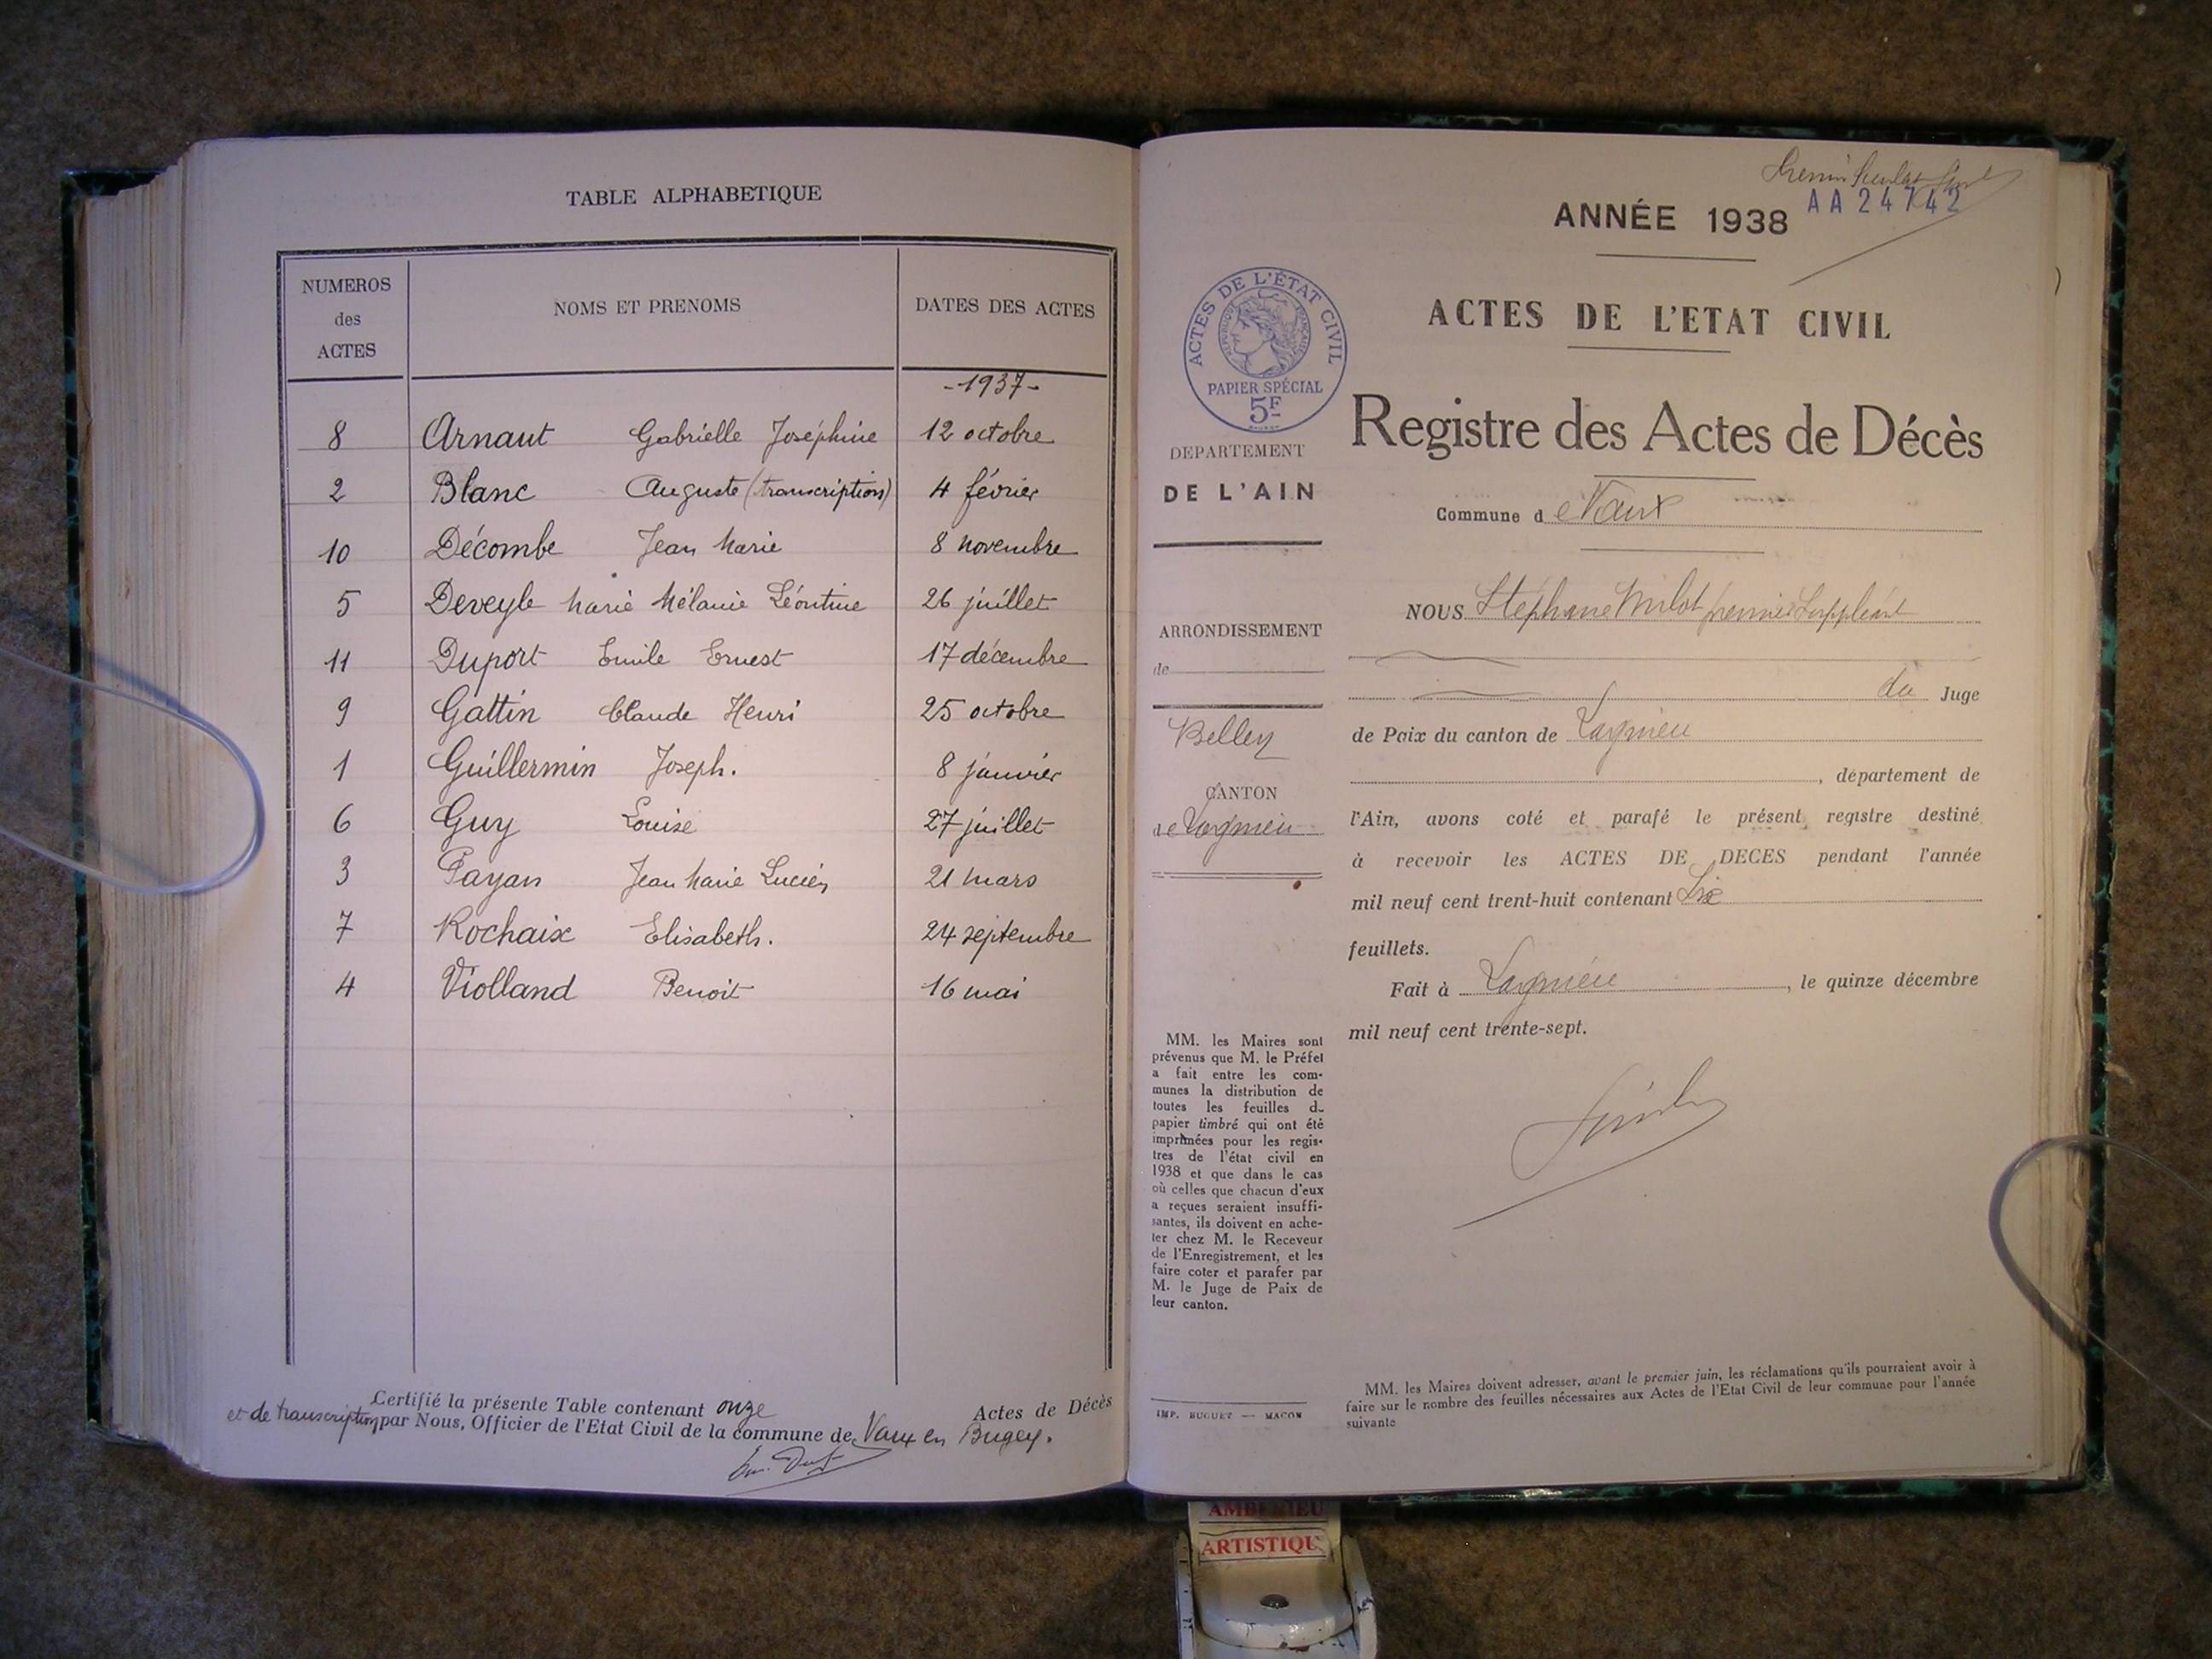 TABLE ALPHABETIQUE
NUMEROS des ACTES NOMS ET PRENOMS DATES DES ACTES
-1937-
8 Arnaut Gabrielle Joséphine 12 octobre
2 Blanc Auguste (transcription) 4 février
10 Décombe Jean Marie 8 novembre
5 Deveyle Marie Mélanie Léontine 26 juillet
11 Duport Emile Ernest 17 décembre
9 Gattin Claude Henri 25 octobre
1 Guillermin Joseph. 8 janvier
6 Guy Louise 27 juillet
3 Payan Jean Marie Lucien 21 mars
7 Rochaix Elisabeth. 24 septembre
4 Violland Benoit 16 mai
Certifié la présente Table contenant onze Actes de Décès
et de transcription par Nous, Officier de l'Etat Civil de la commune de Vaux en Bugey.
AA 24742
ANNÉE 1938
ACTES DE L'ETAT CIVIL
Registre des Actes de Décès
Commune de Vaux
NOUS Stéphane premier Suppléant
du Juge
de Paix du canton de Lagnieu
, département de
l'Ain, avons coté et parafé le présent registre destiné
à recevoir les ACTES DE DECES pendant l'année
mil neuf cent trent-huit contenant Six
feuillets.
Fait à Lagnieu, le quinze décembre
mil neuf cent trente-sept.
ACTES DE L'ÉTAT CIVIL
RÉPUBLIQUE FRANÇAISE
PAPIER SPÉCIAL
5F
DEPARTEMENT
DE L'AIN
ARRONDISSEMENT
de
Belley
CANTON
de Lagnieu
MM. les Maires sont
prévenus que M. le Préfet
a fait entre les com-
munes la distribution de
toutes les feuilles de
papier timbré qui ont été
imprimées pour les regis-
tres de l'état civil en
1938 et que dans le cas
où celles que chacun d'eux
a reçues seraient insuffi-
santes, ils doivent en ache-
ter chez M. le Receveur
de l'Enregistrement, et les
faire coter et parafer par
M. le Juge de Paix de
leur canton.
IMP. BUGUET — MACON
MM. les Maires doivent adresser, avant le premier juin, les réclamations qu'ils pourraient avoir à
faire sur le nombre des feuilles nécessaires aux Actes de l'Etat Civil de leur commune pour l'année
suivante
AMBERIEU
ARTISTIQU